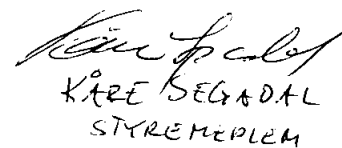 KÅRE SEGADAL
STYREMEDLEM